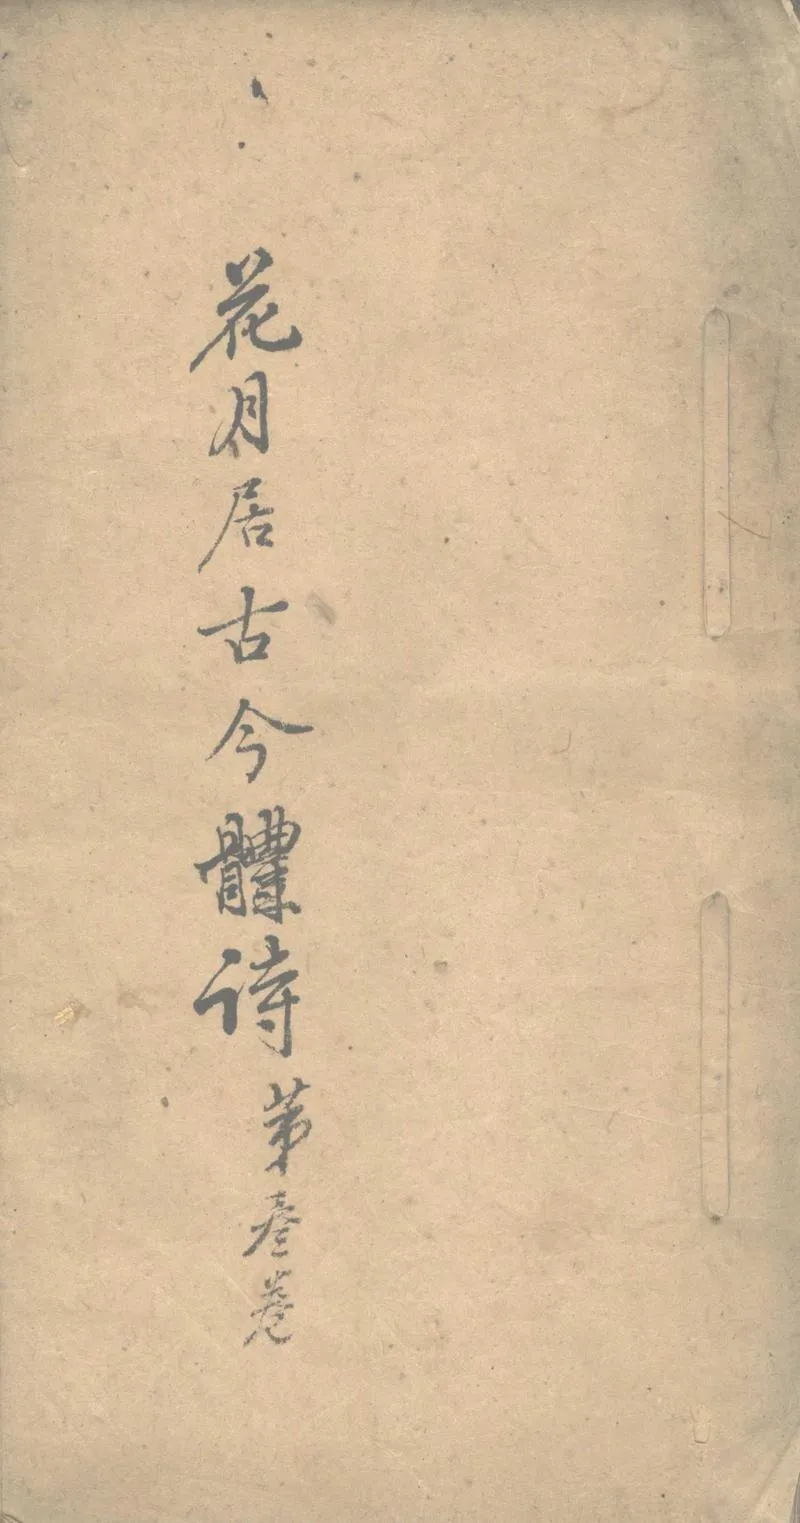 花月居古今體诗第叁卷